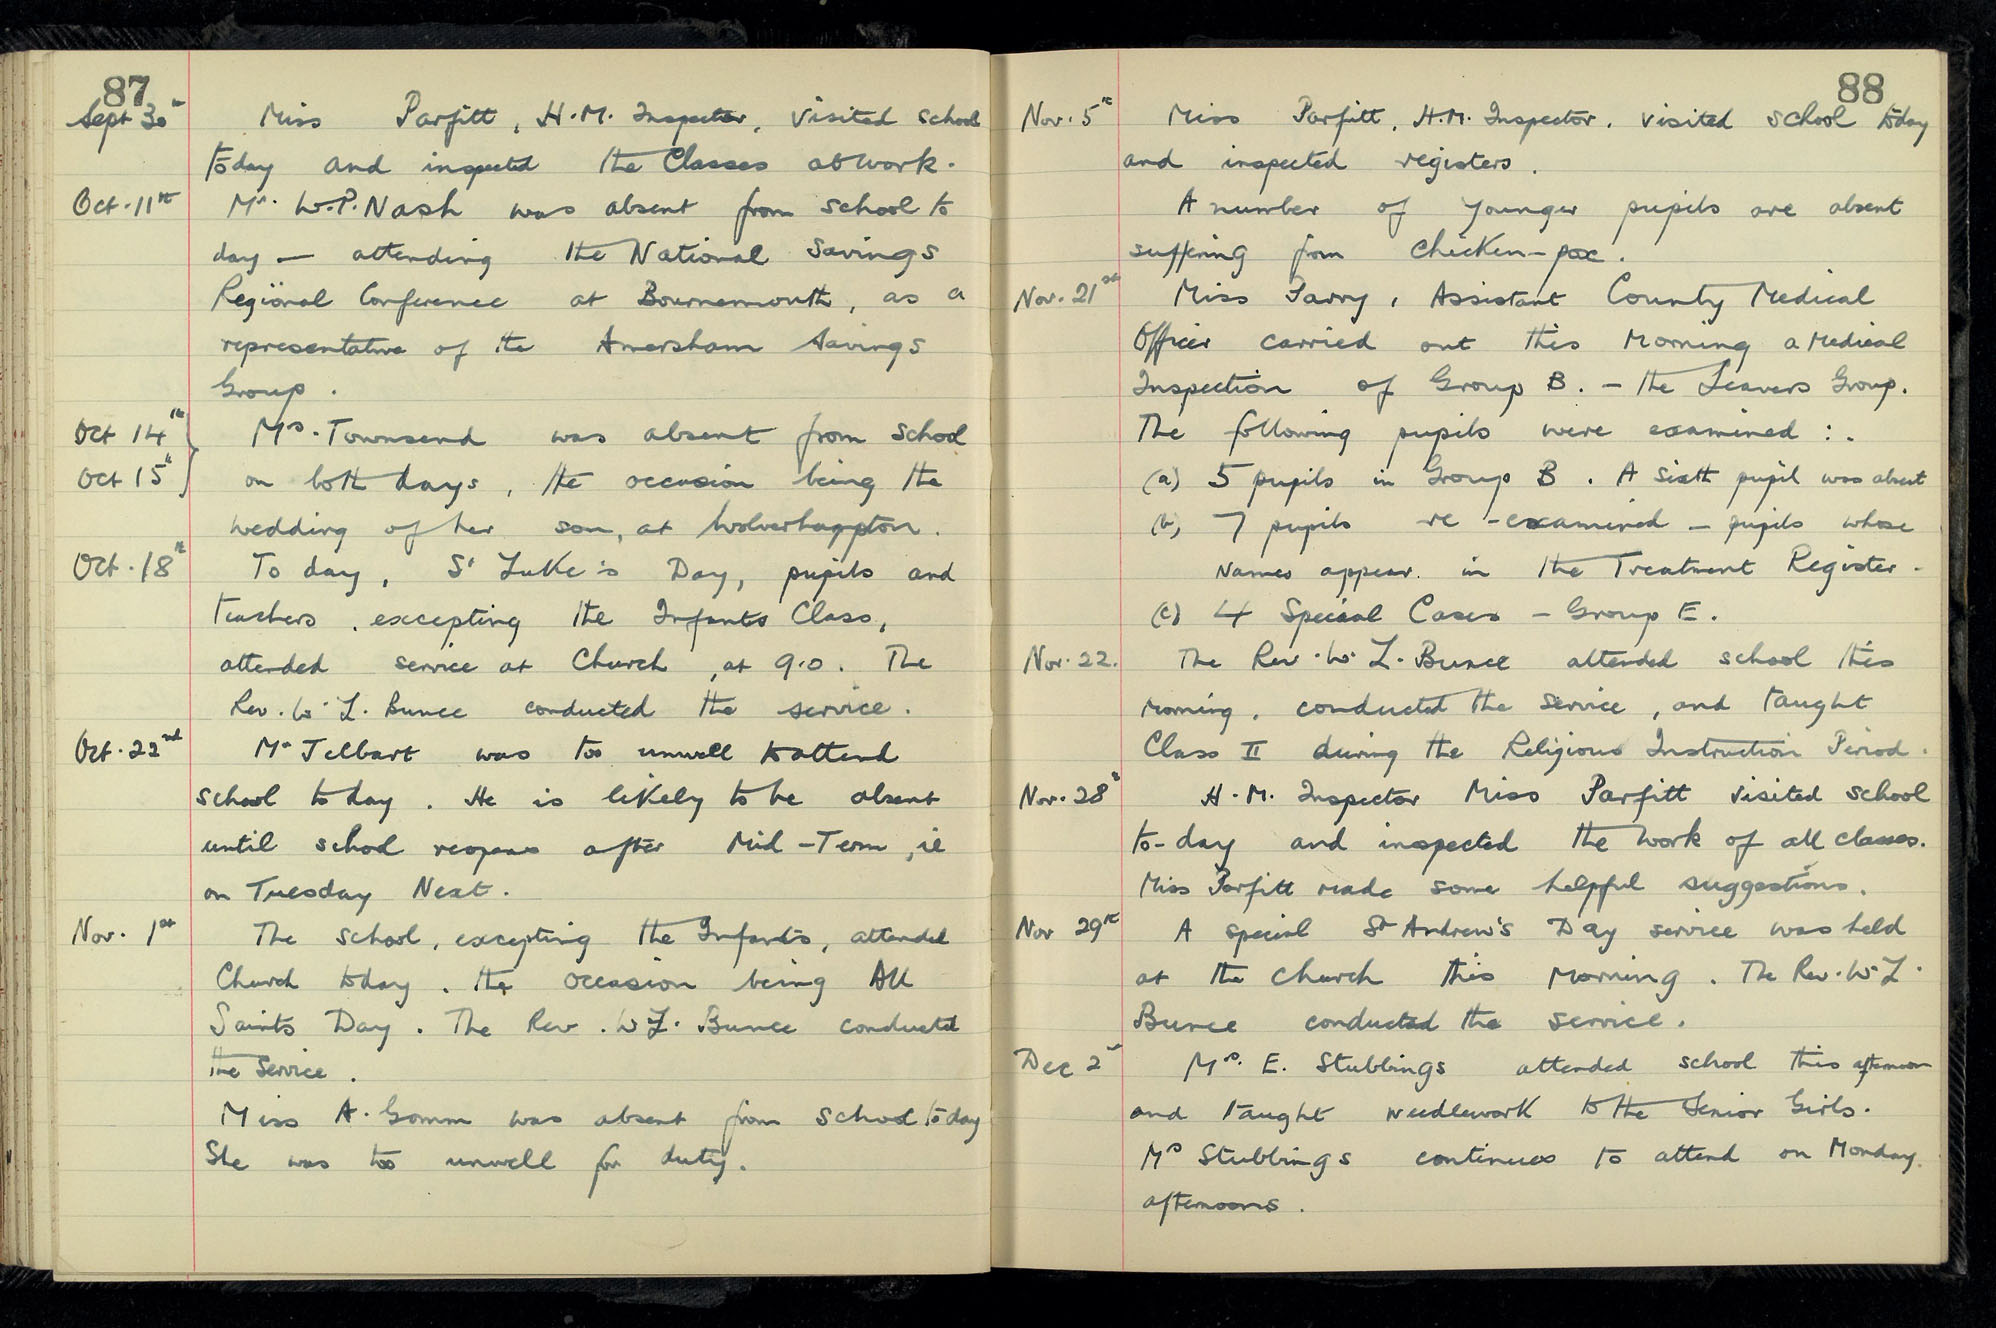 87
Sept 30th Miss Parfitt, H.M. Inspector, visited school
today and inspected the Classes at work.
Oct. 11th Mr. W.P. Nash was absent from school to
day — attending the National Savings
Regional Conference at Bournemouth, as a
representative of the Amersham Savings
Group.
Oct 14th Mrs. Townsend was absent from school
Oct 15th on both days, the occasion being the
wedding of her son, at Wolverhampton.
Oct. 18th To day, St Luke's Day, pupils and
teachers, excepting the Infants Class,
attended service at Church, at 9.0. The
Rev. W. L. Bunce conducted the service.
Oct. 22nd Mr Jelbart was too unwell to attend
school today. He is likely to be absent
until school reopens after Mid-Term, ie
on Tuesday Next.
Nov. 1st The school, excepting the Infants, attended
Church today, the occasion being All
Saints Day. The Rev. W L. Bunce conducted
the service.
Miss A. Gomm was absent from school today
She was too unwell for duty.
88
Nov. 5th Miss Parfitt, H.M. Inspector, visited school today
and inspected registers.
A number of younger pupils are absent
suffering from chicken-pox.
Nov. 21st Miss Parry, Assistant County Medical
Officer carried out this morning a Medical
Inspection of Group B. – the Leavers Group.
The following pupils were examined :.
(a) 5 pupils in Group B. A sixth pupil was absent
(b) 7 pupils re-examined – pupils whose
Names appear in the Treatment Register.
(c) 4 Special Cases – Group E.
Nov. 22. The Rev. W. L. Bunce attended school this
morning, conducted the service, and taught
Class II during the Religious Instruction Period.
Nov. 28th H.M. Inspector Miss Parfitt visited school
to-day and inspected the work of all classes.
Miss Parfitt made some helpful suggestions.
Nov 29th A special St Andrew's Day service was held
at the church this morning. The Rev. W. L.
Bunce conducted the service.
Dec 2nd Mrs. E. Stubbings attended school this afternoon
and taught needlework to the Senior Girls.
Mrs Stubbings continues to attend on Monday
afternoons.